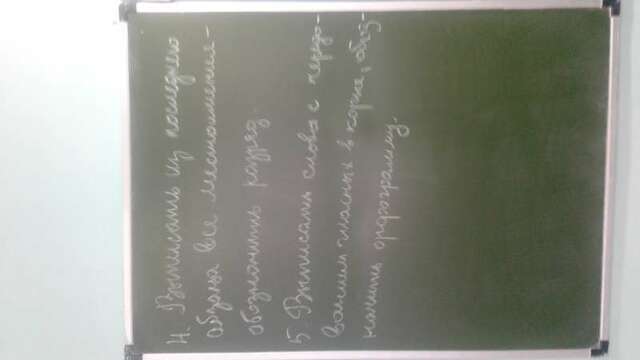 4. Выписать из последнего
абзаца все местоимения -
обозначить разряд.
5. Выписать слова с чередо-
ванием гласных в корне, обоз-
начить орфограмму.